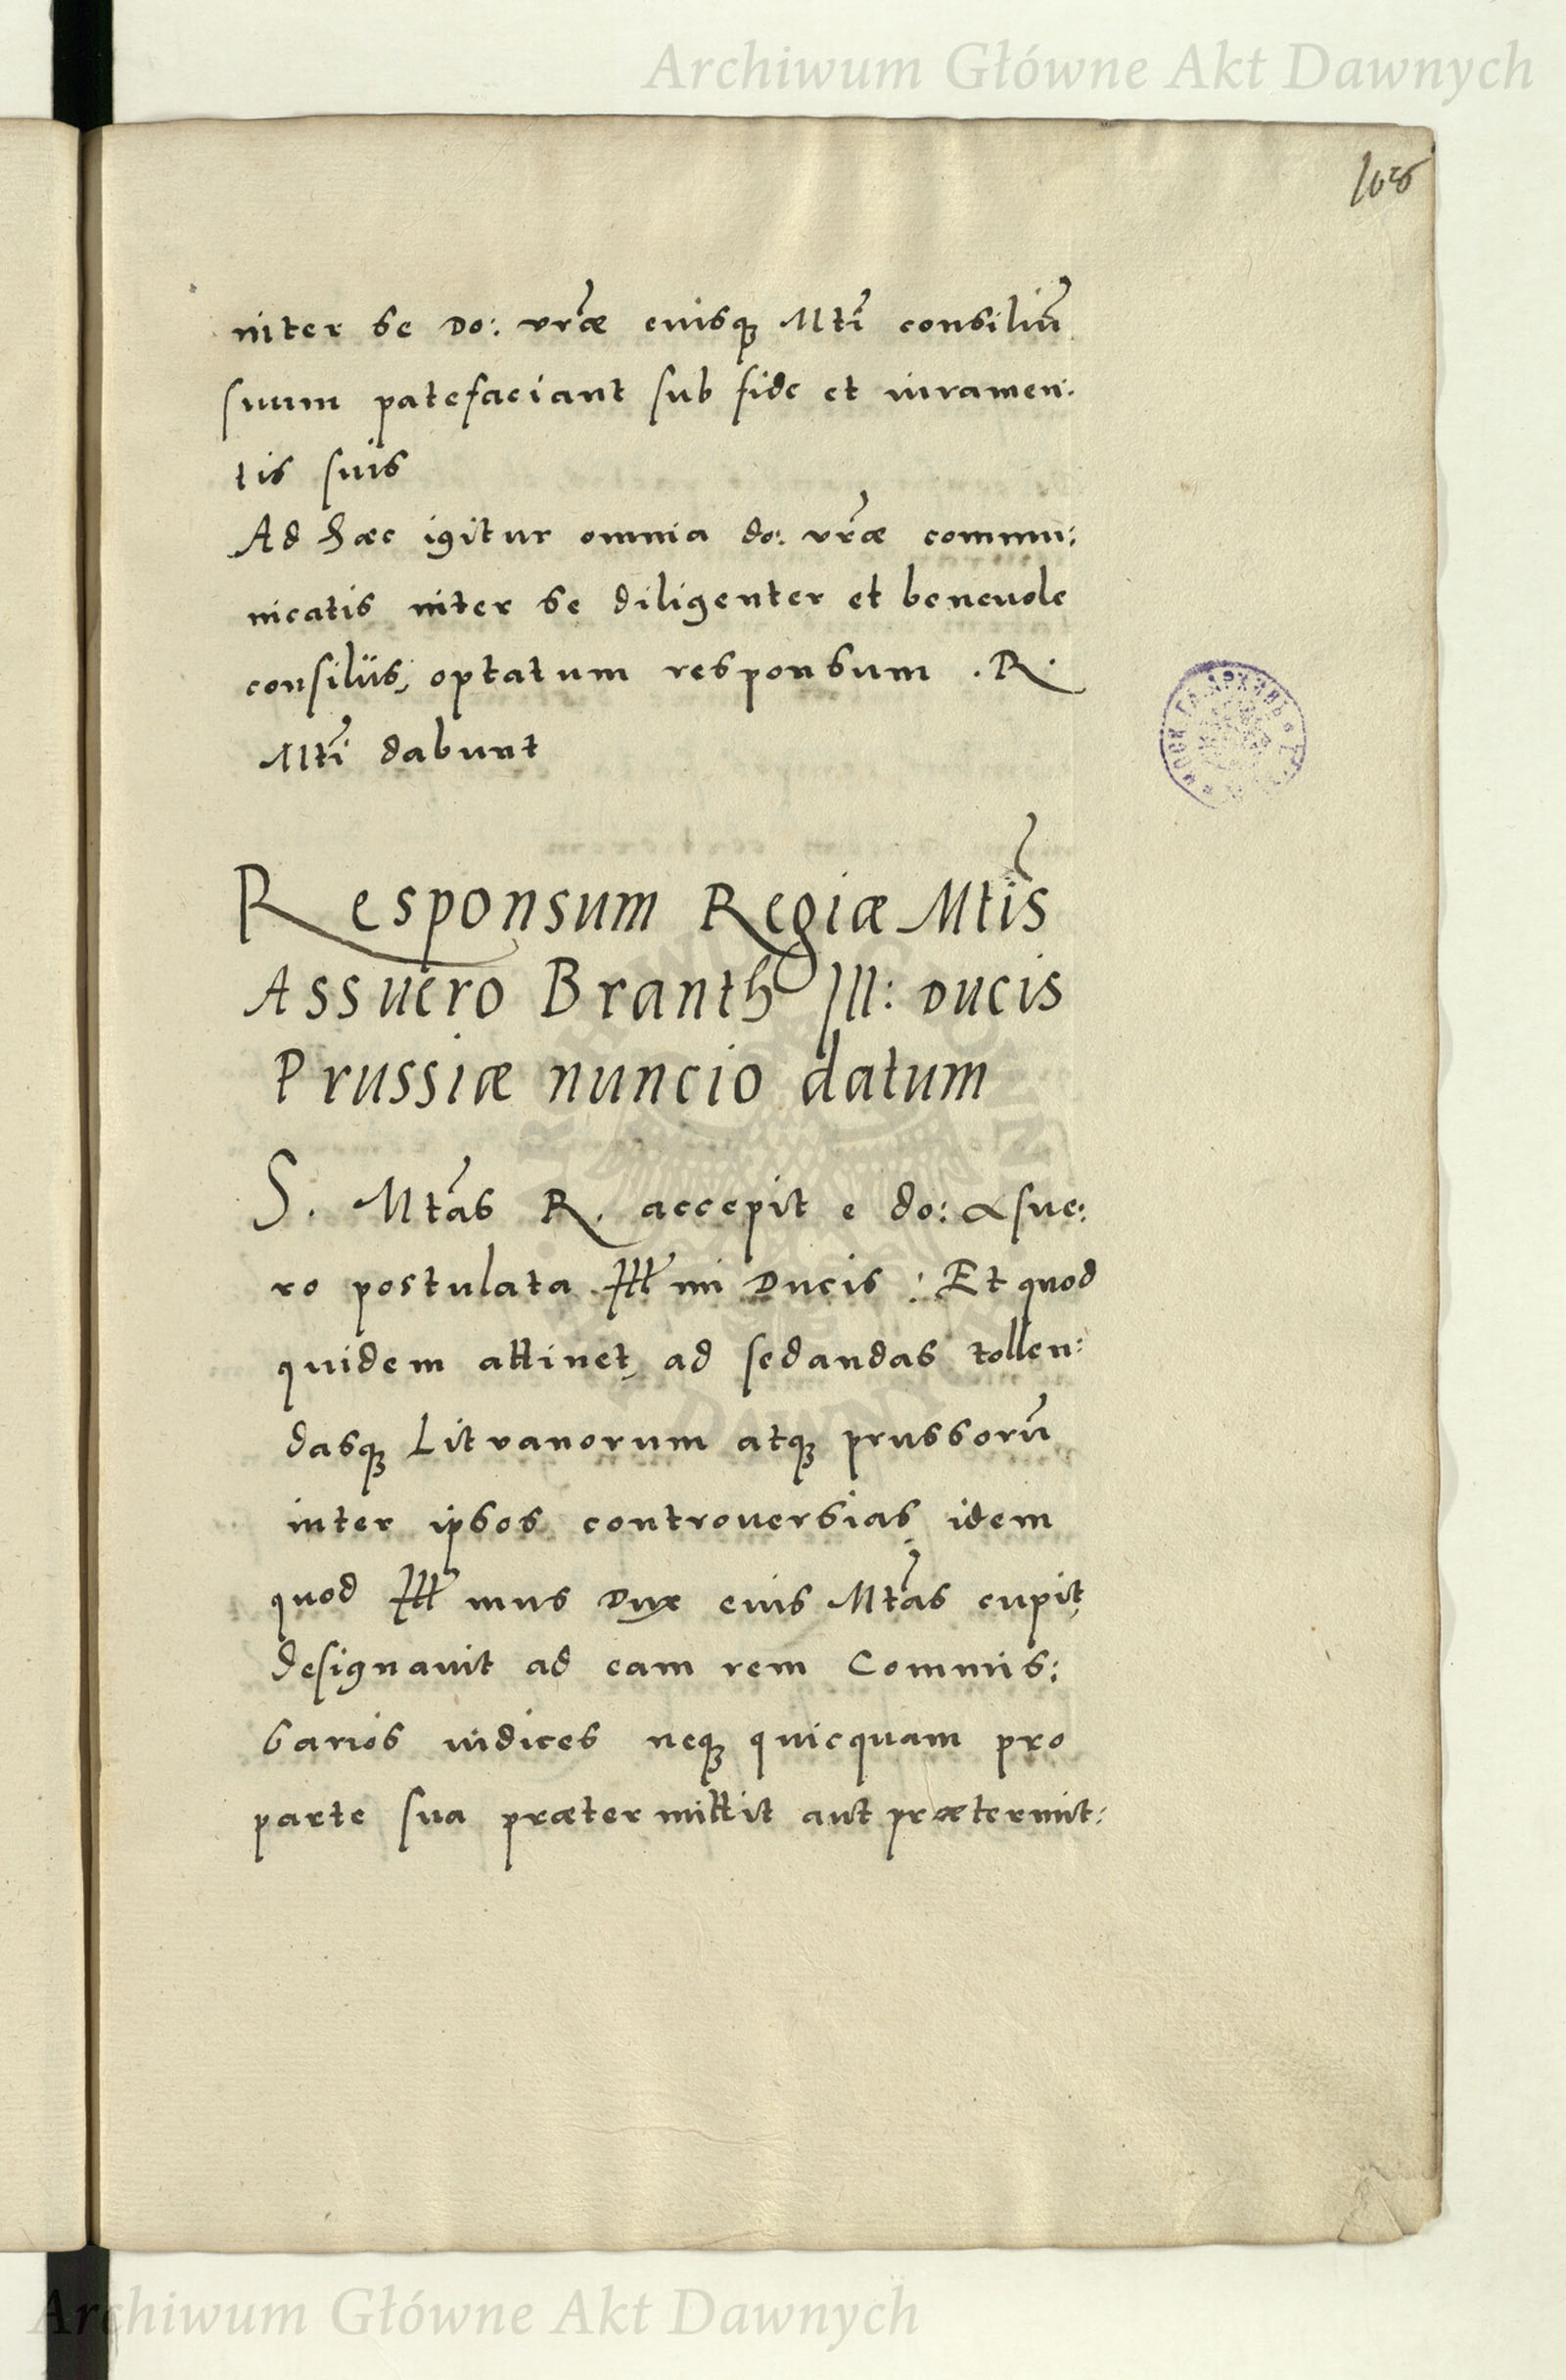 Archiwum Główne Akt Dawnych
inter se Do: vr̃æ eiusq; Mti consiliũ
suum patefaciant sub fide et iuramen:
tis suis
Ad hæc igitur omnia do: vr̃æ commu:
nicatis inter se diligenter et beneuole
consiliis, optatum responsum .R.
Mti dabunt
Responsum Regiæ Mtis
Assuero Branth Ill: Ducis
Prussiæ nuncio datum
S. Mtas R. accepit e do: Asue:
ro postulata Ill mi Ducis : Et quod
quidem attinet, ad sedandas tollen:
dasq; Litvanorum atq; prussorũ
inter ipsos controuersias, idem
quod Ill mus Dux eius Mtas cupit,
designauit ad eam rem Commis:
sarios iudices neq; quicquam pro
parte sua præter mittit aut prætermit:
Archiwum Główne Akt Dawnych